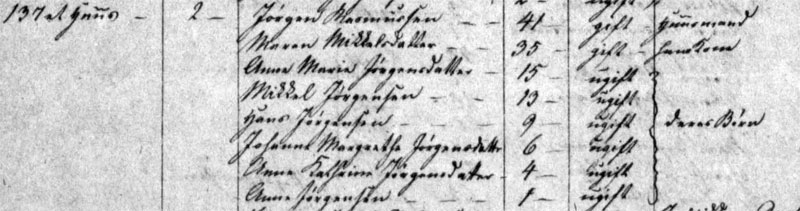 137 et Huus - 2 - Jørgen Rasmussen - 41 - gift Huusmand
Maren Mikkelsdatter - - 35 - gift - hans Kone
Anne Marie Jørgensdatter - 15 - ugift
Mikkel Jørgensen - - - 13 - ugift
Hans Jørgensen - - - 9 - ugift deres Börn
Johanne Margrethe Jørgensdatter 6 - ugift
Anne Kathrine Jørgensdatter - 4 - ugift
Anne Jørgensen - - - 1 - ugift